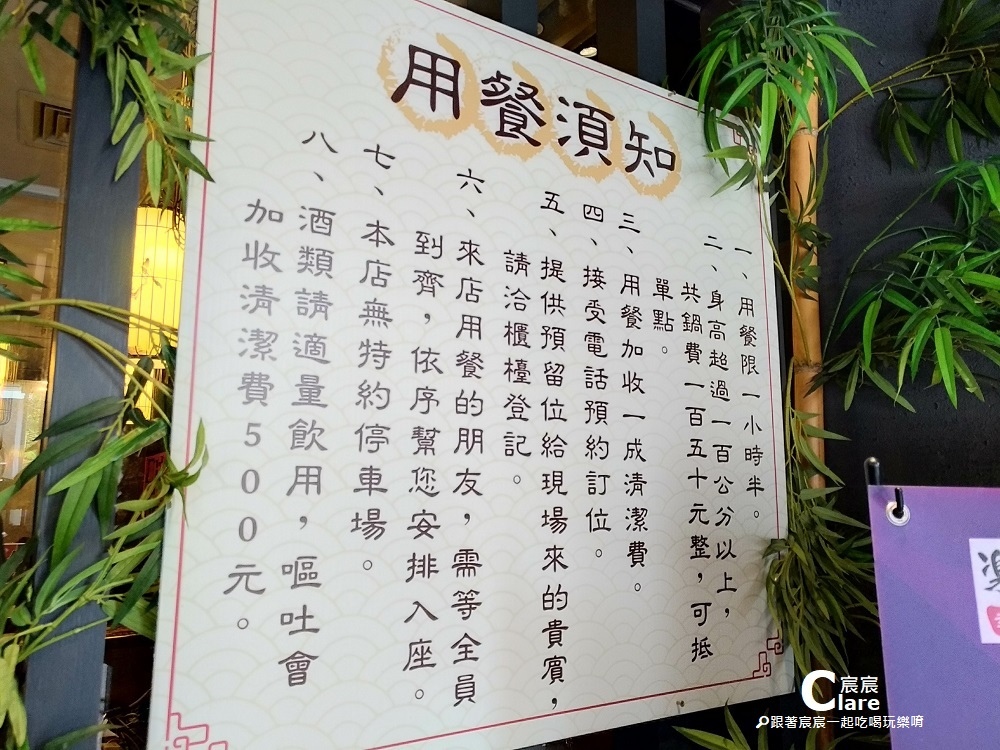 用餐須知
一、用餐限一小時半。
二、身高超過一百公分以上，
共鍋費一百五十元整，可抵
單點。
三、用餐加收一成清潔費。
四、接受電話預約訂位。
五、提供預留位給現場來的貴賓，
請洽櫃檯登記。
六、來店用餐的朋友，需等全員
到齊，依序幫您安排入座。
七、本店無特約停車場。
八、酒類請適量飲用，嘔吐會
加收清潔費500元。
宸宸
Clare
跟著宸宸一起吃喝玩樂唷